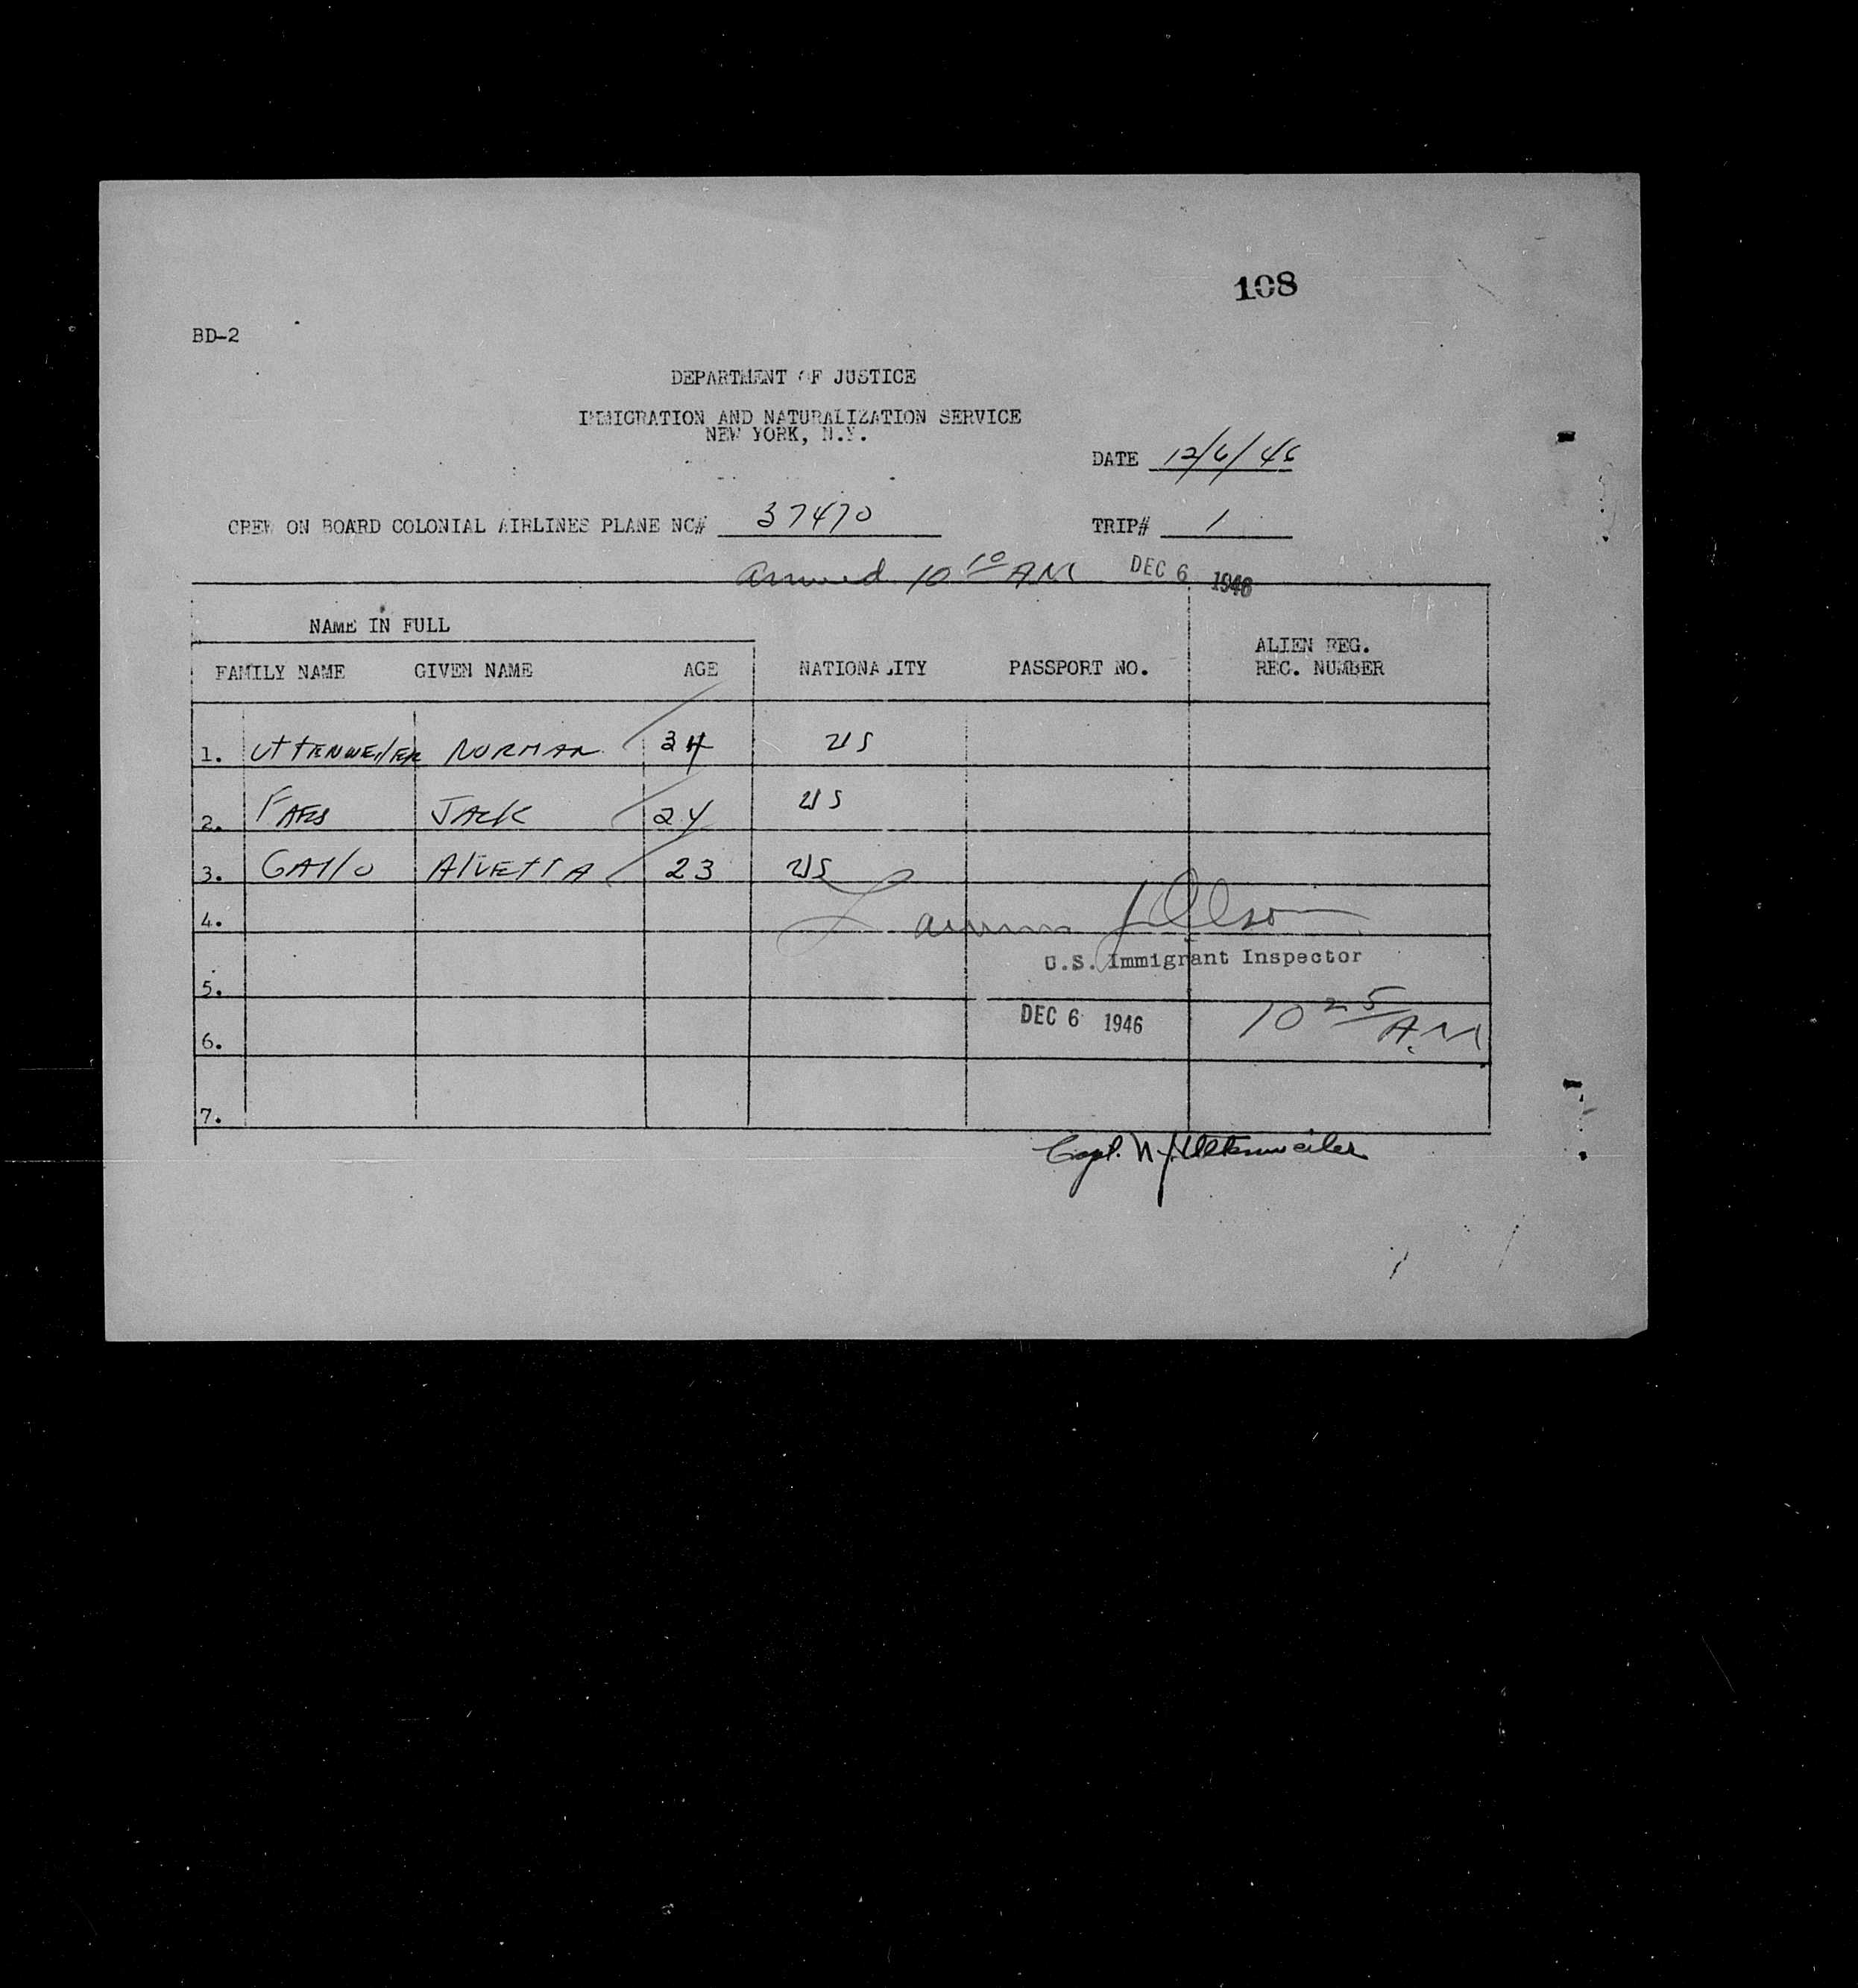 108
BD-2
DEPARTMENT OF JUSTICE
IMMIGRATION AND NATURALIZATION SERVICE
NEW YORK, N.Y.
DATE 12/6/46
CREW ON BOARD COLONIAL AIRLINES PLANE NC# 37470 TRIP# 1
arrived 10 10 AM DEC 6 1946
NAME IN FULL
FAMILY NAME GIVEN NAME AGE NATIONALITY PASSPORT NO. ALIEN REG. REC. NUMBER
1. UttENWEilER NORMAN 34 US
2. JACK 24 US
3. GAllO AlVEttA 23 US
4.
U.S. Immigrant Inspector
5.
DEC 6 1946 10 25 A.M
6.
7.
Capt. N J Uttenweiler